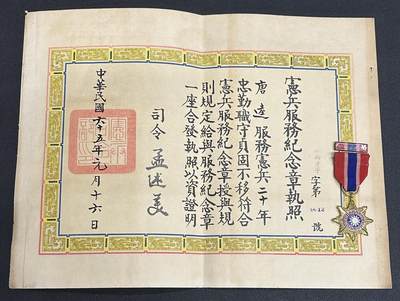 憲兵服務紀念章執照
字第
號
唐逵服務憲兵二十年
忠勤職守貞固不移符合
憲兵服務紀念章授與規
則規定給與服務紀念章
一座合發執照以資證明
司令 孟述美
中華民國六十五年元月十六日